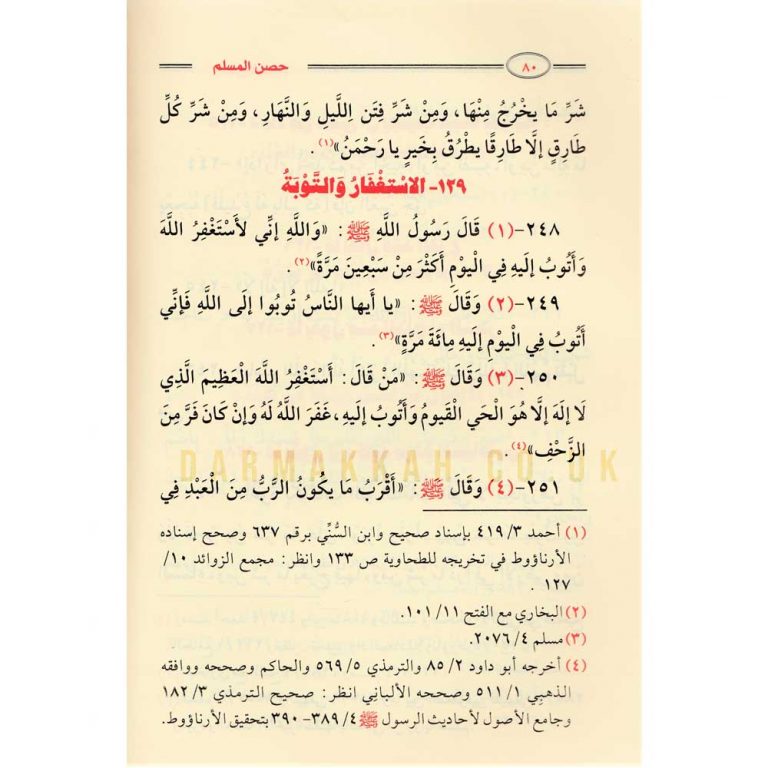 ٨٠ حصن المسلم
شَرِّ مَا يخْرُجُ مِنْهَا، وَمِنْ شَرِّ فِتَنِ اللَّيلِ وَالنَّهَارِ، وَمِنْ شَرِّ كُلِّ
طَارِقٍ إلَّا طَارِقًا يطْرُقُ بِخَيرٍ يا رَحْمَنُ»(١).
١٢٩- الاسْتغْفَارُ وَالتَّوْبَةُ
٢٤٨-(١) قَالَ رَسُولُ اللَّهِ ﷺ: «وَاللَّهِ إنِّي لأَسْتَغْفِرُ اللَّهَ
وَأَتُوبُ إلَيهِ فِي الْيَوْمِ أَكثَرَ مِنْ سَبْعِينَ مَرَّةً»(٢).
٢٤٩-(٢) وَقَالَ ﷺ: «يا أَيها النَّاسُ تُوبُوا إلَى اللَّهِ فَإنِّي
أَتُوبُ فِي الْيَوْمِ إلَيهِ مِائَةَ مَرَّةٍ»(٣).
٢٥٠-(٣) وَقَالَ ﷺ: «مَنْ قَالَ: أَسْتَغْفِرُ اللَّهَ الْعَظِيمَ الَّذِي
لَا إلَهَ إلَّا هُوَ الْحَي الْقَيومُ وَأَتُوبُ إلَيهِ، غَفَرَ اللَّهُ لَهُ وَإنْ كَانَ فَرَّ مِنَ
الزَّحْفِ»(٤).
DARMAKKAH.CO.UK
٢٥١-(٤) وَقَالَ ﷺ: «أَقْرَبُ مَا يكُونُ الرَّبُّ مِنَ الْعَبْدِ فِي
(١) أحمد ٣/ ٤١٩ بإسناد صحيح وابن السُّنِّي برقم ٦٣٧ وصحح إسناده
الأرناؤوط في تخريجه للطحاوية ص ١٣٣ وانظر: مجمع الزوائد ١٠/
١٢٧ .
(٢) البخاري مع الفتح ١١/ ١٠١.
(٣) مسلم ٤/ ٢٠٧٦.
(٤) أخرجه أبو داود ٢/ ٨٥ والترمذي ٥/ ٥٦٩ والحاكم وصححه ووافقه
الذهبِي ١/ ٥١١ وصححه الألباني انظر: صحيح الترمذي ٣/ ١٨٢
وجامع الأصول لأحاديث الرسول ﷺ ٤/ ٣٨٩- ٣٩٠ بتحقيق الأرناؤوط.